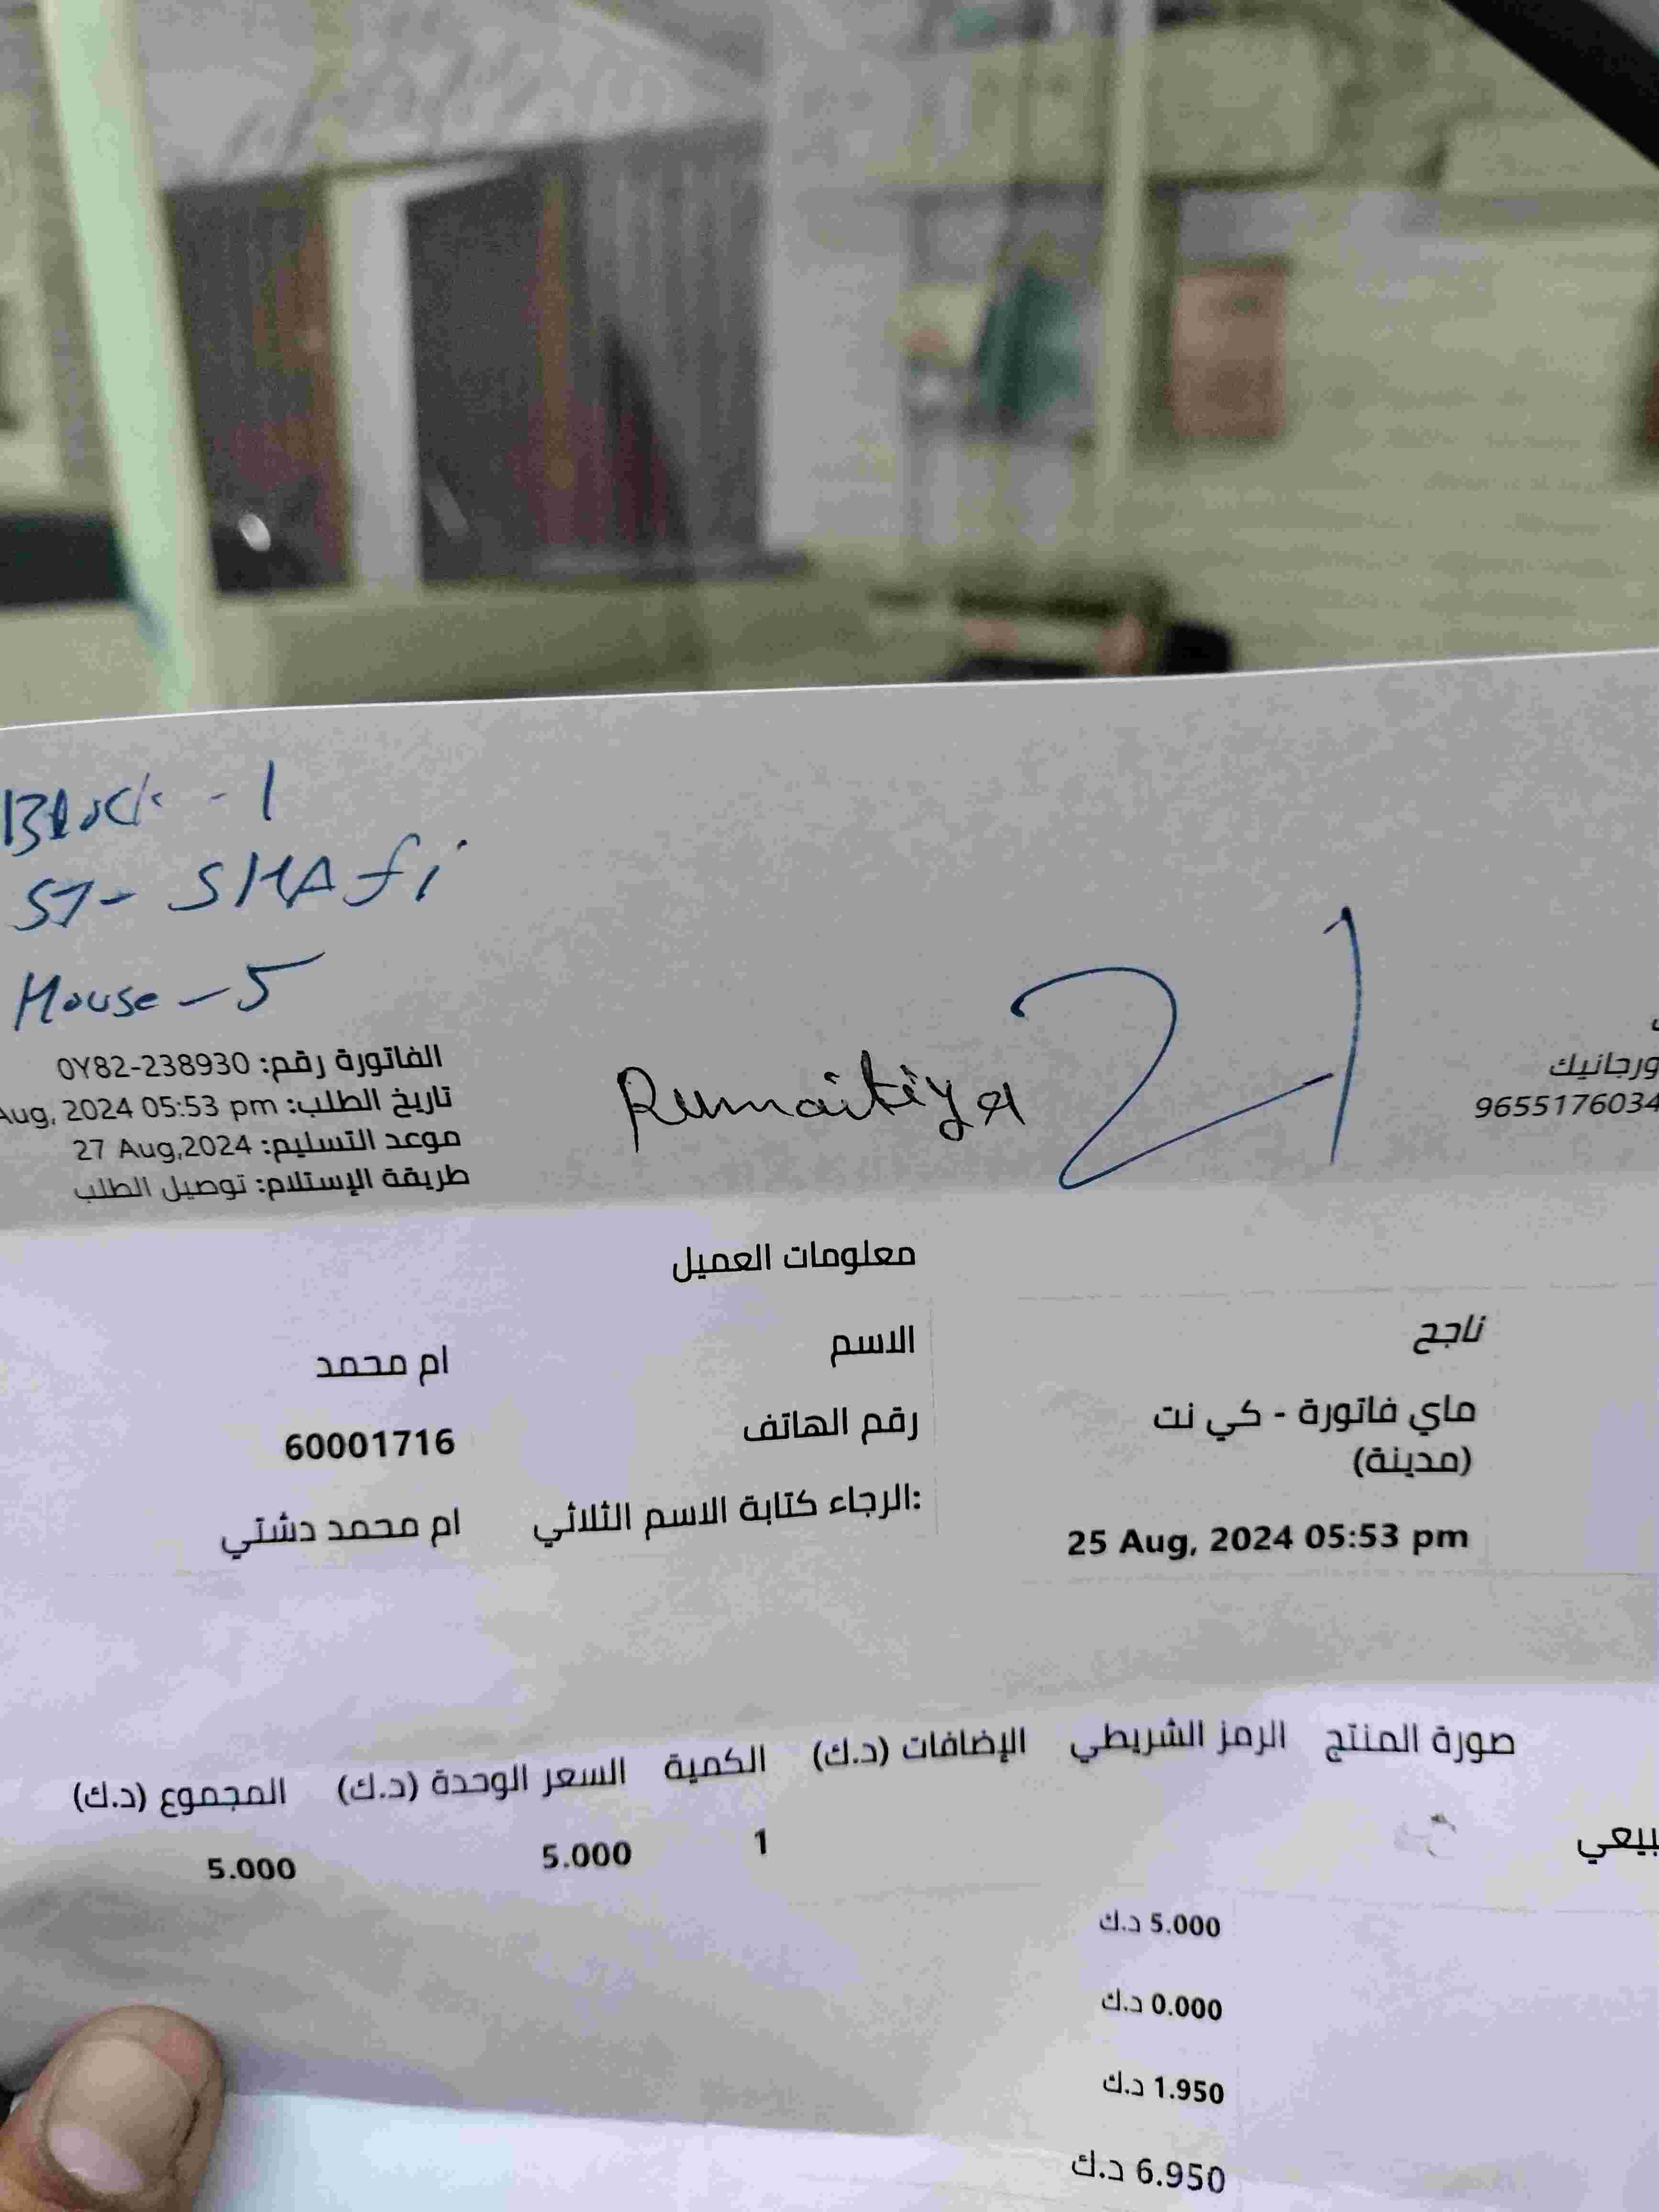 Block - 1
ST- SHAfi
House - 5
Rumaitiya 21
ورجانيك
9655176034
الفاتورة رقم: 0Y82-238930
تاريخ الطلب: Aug, 2024 05:53 pm
موعد التسليم: 27 Aug,2024
طريقة الإستلام: توصيل الطلب
معلومات العميل
ناجح
الاسم ام محمد
ماي فاتورة - كي نت
(مدينة)
رقم الهاتف 60001716
25 Aug, 2024 05:53 pm
الرجاء كتابة الاسم الثلاثي: ام محمد دشتي
صورة المنتج الرمز الشريطي الإضافات (د.ك) الكمية السعر الوحدة (د.ك) المجموع (د.ك)
بيعي 1 5.000 5.000
5.000 د.ك
0.000 د.ك
1.950 د.ك
6.950 د.ك